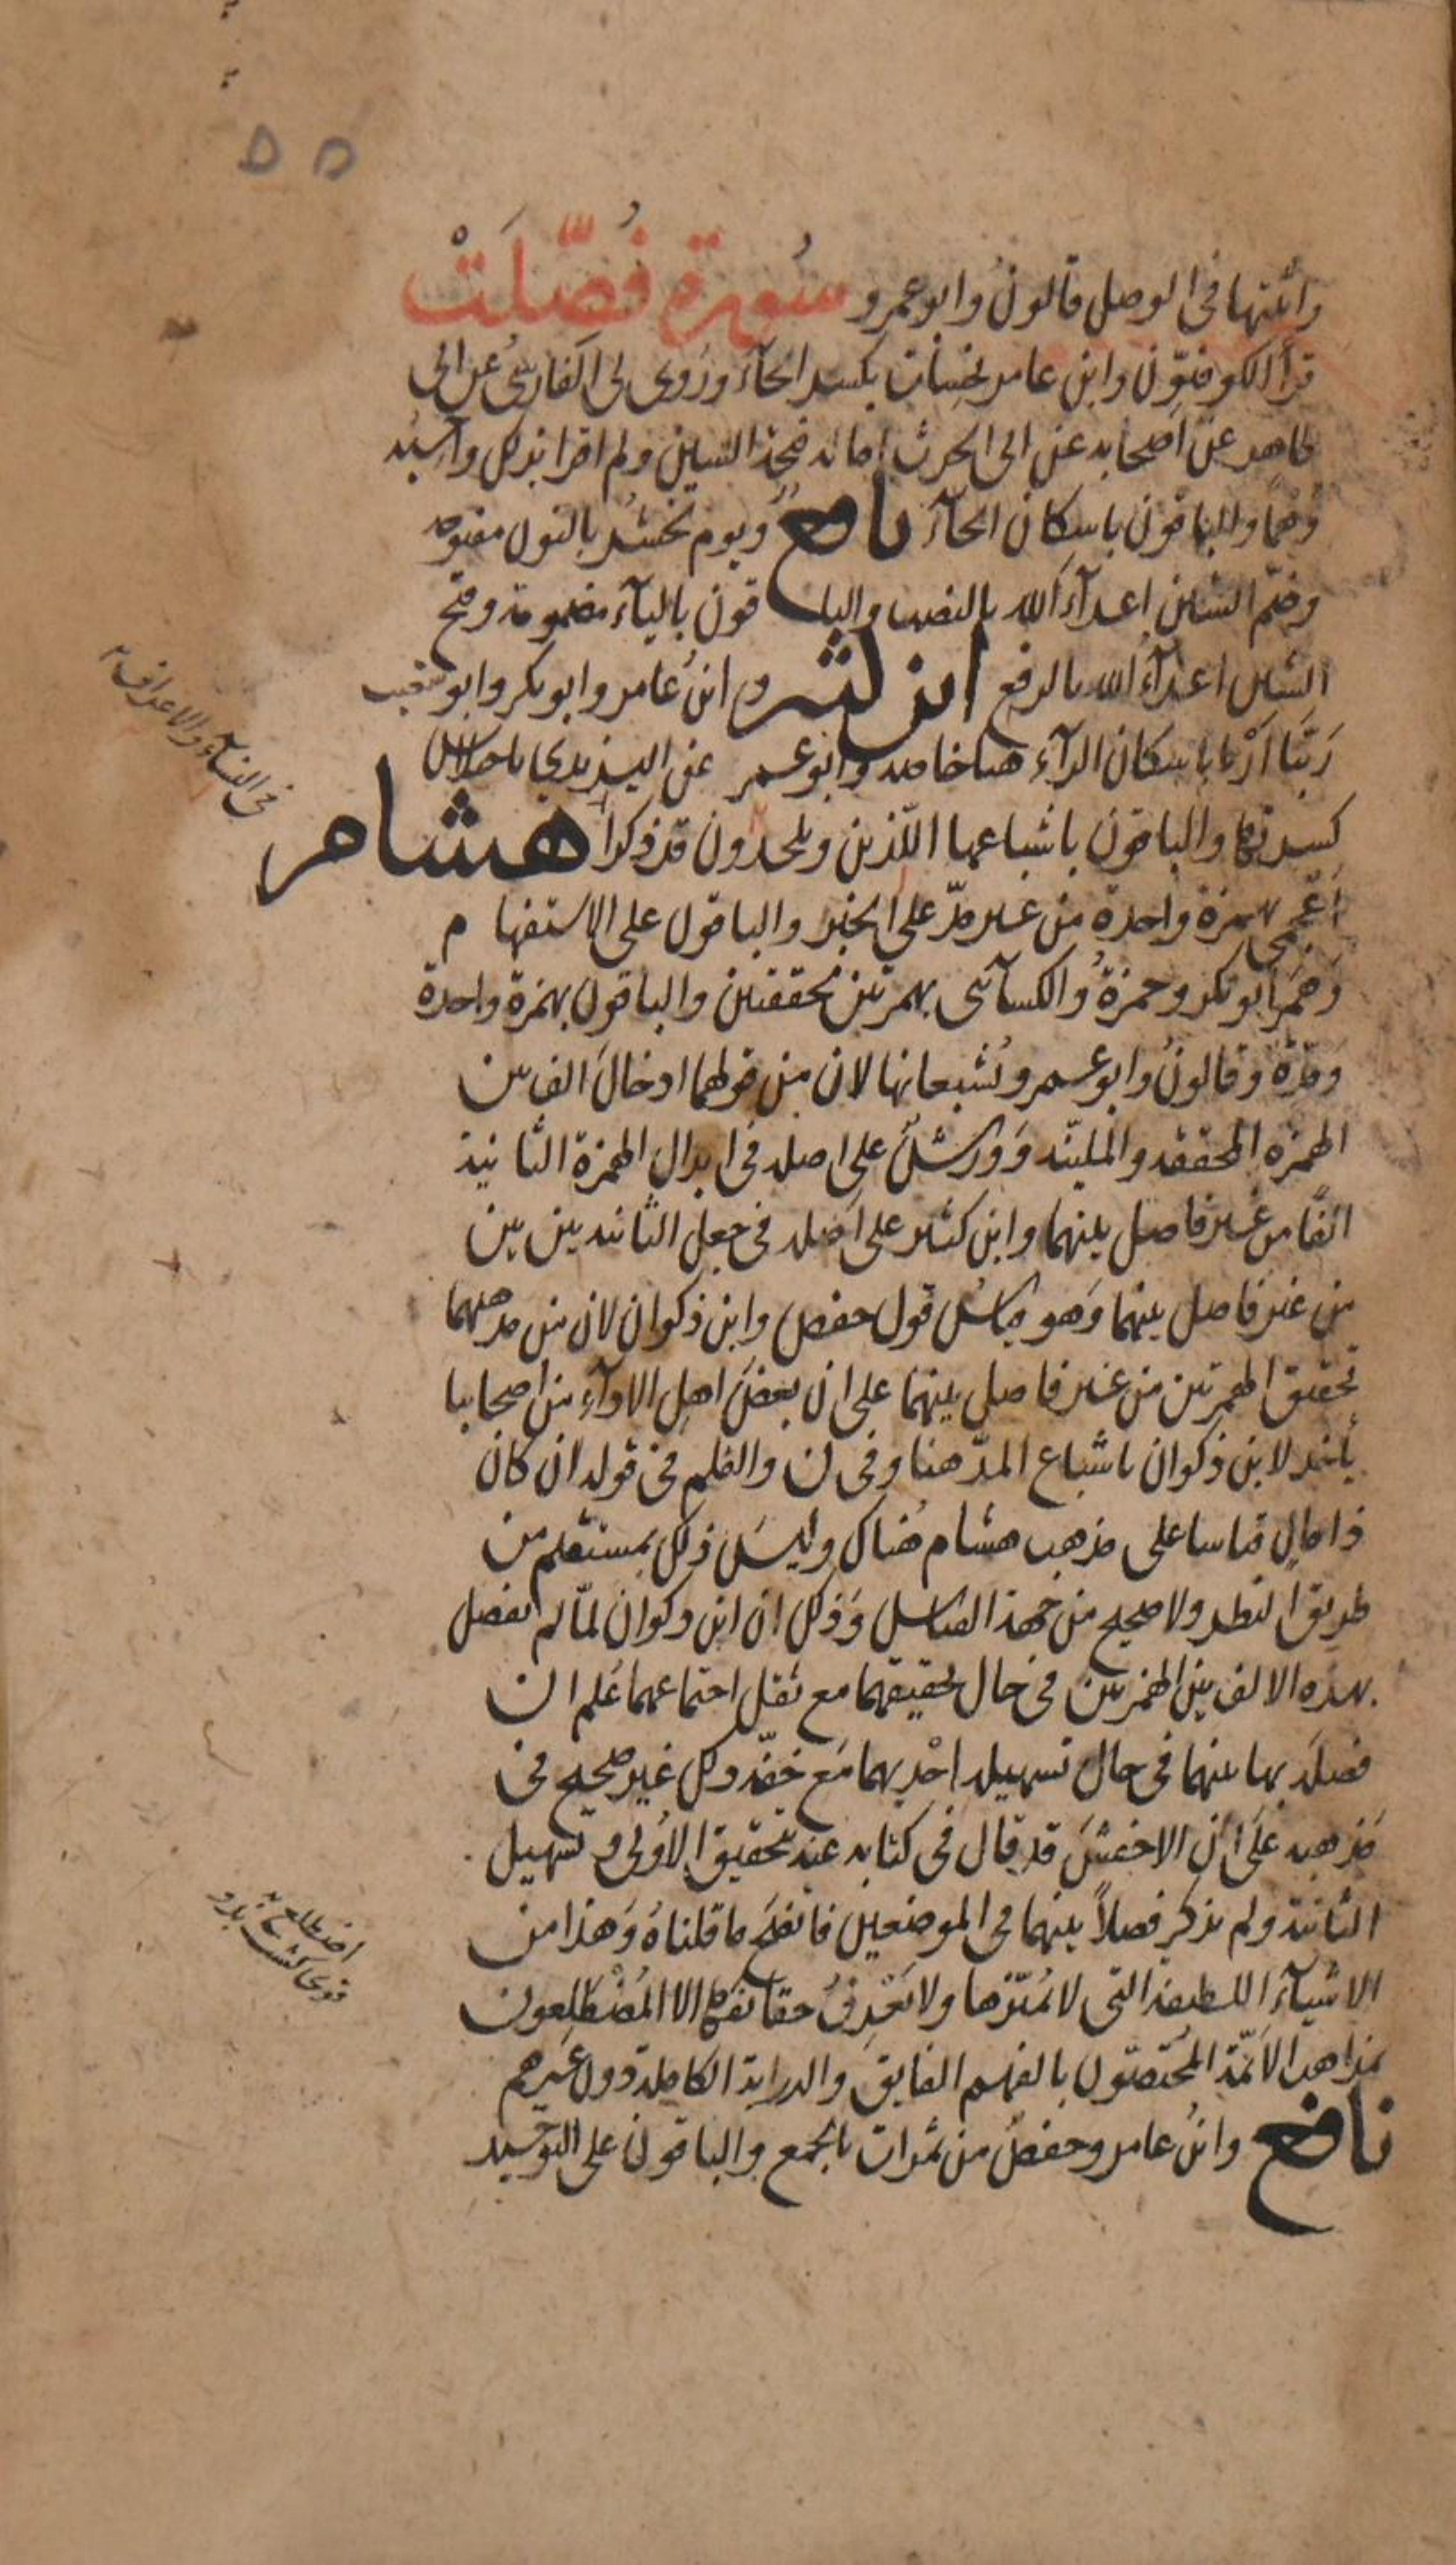 ۵۵
واثبتها في الوصل قالونُ وابو عمرو سُورة فُصّلَتْ
قرأ الكوفيّون وابن عامر نحِسات بكسر الحآء وروى لى الفارسىُّ عن ابى
طاهر عن اصحابه عن ابى الحرث امالة فتحة السين ولم اقرا بذلك واحسِبُه
وَهَمًا والباقون باسكان الحآء نافع ويوم نحشُر بالنون مفتوحه
وضمّ الشين اعدآءَ الله بالنصب والباقون باليآء مضمومة وفتح
الشين اعدآءُ الله بالرفع ابن كثير وابنُ عامر وابو بكر وابو شعيب
ربَّنا أرْنا باسكان الرآء هنا خاصه وابو عمر عن اليزيدي باختلاس
كسرتها والباقون باشباعها اللّذين ويلحدون قد ذكرا هشام
أعجمي بهمزة واحدة من غير مدّ على الخبر والباقون على الاستفهام
وَهَمَزَ ابو بكر وحمزةُ والكسآئى بهمزتين محققتين والباقون بهمزة واحدة
ومَدّة وقالونُ وابو عمرو يُشبعانها لان من قولهما ادخالَ الف بين
الهمزه المحققه والمليّنه وَوَرْشٌ على اصله في ابدال الهمزة الثانية
الفًا من غير فاصل بينهما وابن كثير على أصله في جعل الثانيه بين بين
من غير فاصل بينهما وَهو قياسُ قول حفص وابن ذكوان لان من مذهبهما
تحقيق الهمزتين من غير فاصل بينهما على ان بعضَ اهل الادآء من اصحابنا
يأخذ لابن ذكوان باشباع المدّ هنا وفى ن والقلم فى قوله ان كان
ذا مال قياسا على مذهب هشام هُناك وليسَ ذلك بمستقيم من
طريق النظر ولا صحيح من جهة القياس وَذلك ان ابن ذكوان لمّا لم يفصل
بهذه الالف بين الهمزتين فى حال تحقيقهما مع ثقل اجتماعهما عُلم ان
فصلَه بها بينهما في حال تسهيله احْديهما مَع خفّة ذلك غير صحيح فى
مَذهبه عَلَى ان الاخفشَ قد قال فى كتابه عند تحقيق الأولى وتسهيل
الثانية ولم يذكر فصلاً بينهما فى الموضعين فاتضحَ ما قلناهُ وَهذا من
الاشيآء اللطيفة التى لا يُميّزها ولا يَعْرِفُ حقائقها الا المُضْطَلِعون
بمذاهب الائمّة المُختصّون بالفهم الفايق والدراية الكاملة دون غيرهم
نافع وابنُ عامر وحفصٌ من ثمرات بالجمع والباقون على التوحيد
فى النسآء والاعراف